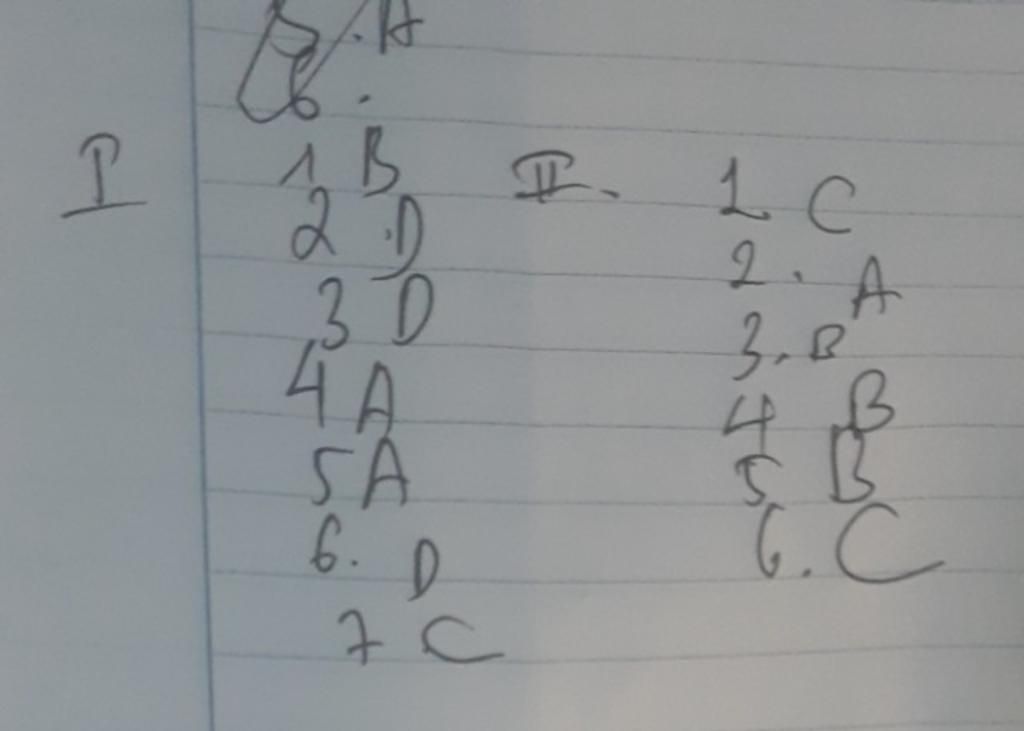 5. A
6.
I
1 B
2 .D
3 D
4 A
5 A
6. D
7 C
II.
1 C
2. A
3. B
4 B
5 B
6. C